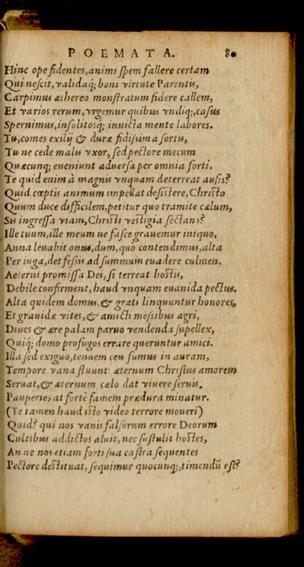 POEMATA. 8.
Hinc ope fidentes, animi spem fallere certam
Qui nescit, validaq; boni virtute Parentis,
Carpimus æthereo monstratum sidere callem,
Et varios rerum, vrgemur quibus vndiq;, casus
Spernimus, insolitosq; inuicta mente labores.
Tu, comes exilij & duræ fidissima sortis,
Tu ne cede malis vxor, sed pectore mecum
Quæcunq; eueniunt aduersa per omnia forti.
Te quid enim à magnis vnquam deterreat ausis?
Quid cœptis animum impellat desistere, Christo
Quum duce difficilem, petitur quo tramite cælum,
Sis ingressa viam, Christi vestigia sectans?
Ille tuum, ille meum ne fasce grauemur iniquo,
Anna leuabit onus, dum, quo contendimus, alta
Per iuga, det fessis ad summum euadere culmen.
Aeterni promissa Dei, si terreat hostis,
Debile confirment, haud vnquam euanida pectus.
Alta quidem domus, & grati linquuntur honores,
Et grauidæ vites, & amicti messibus agri,
Diues & ære palam paruo vendenda supellex,
Quiq; domo profugos errare queruntur amici.
Illa sed exiguo, tenuem ceu fumus in auram,
Tempore vana fluunt: æternum Christus amorem
Seruat, & æternum cælo dat viuere seruis.
Pauperies at fortè famem prædura minatur.
(Te tamen haud isto video terrore moueri)
Quid? qui nos vanis falsorum errore Deorum
Cultibus addictos aluit, nec sustulit hostes,
An ne nos etiam forti sua castra sequentes
Pectore destituat, sequimur quocunq;, timendũ est?